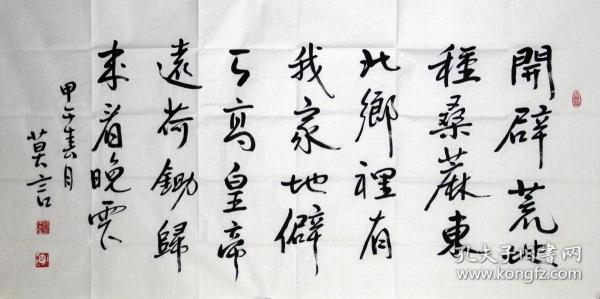 開辟荒坡
種桑蔴東
北鄉裡有
我家地僻
高皇帝
遠荷鋤歸
來看晚
甲午春月
莫言
孔夫子旧书网
www.kongfz.com